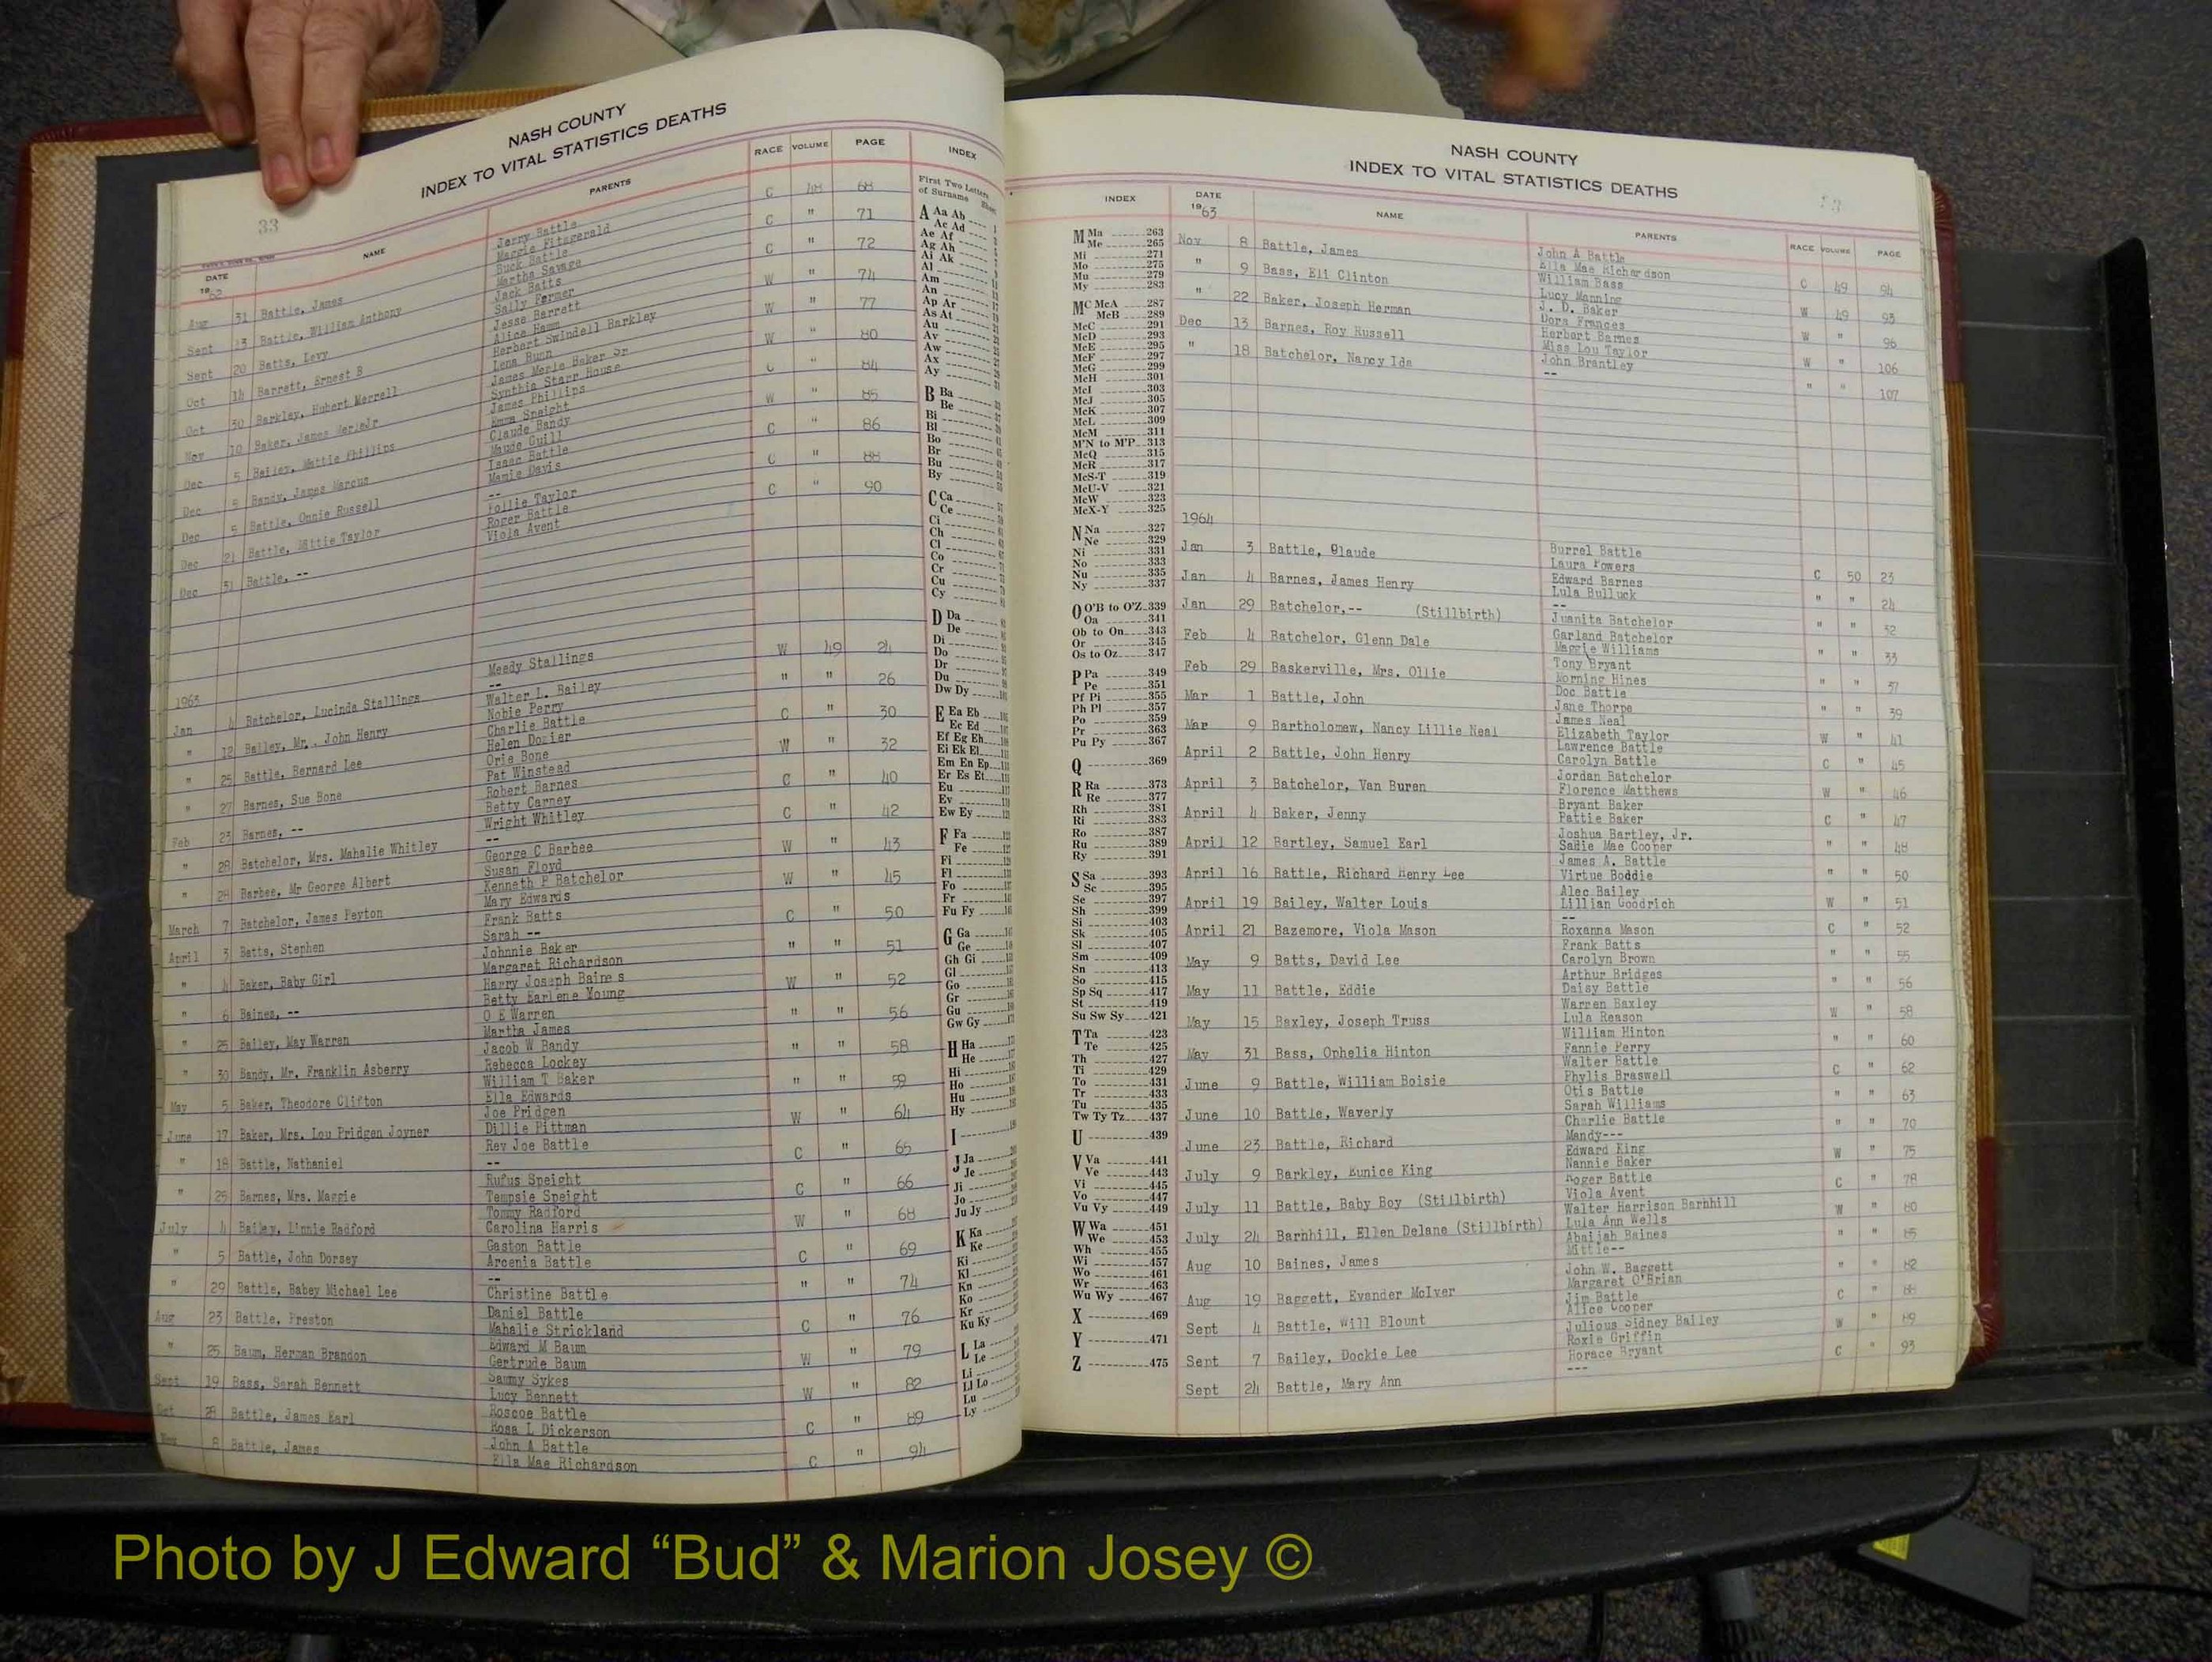 33
NASH COUNTY
INDEX TO VITAL STATISTICS DEATHS
DATE NAME PARENTS RACE VOLUME PAGE INDEX
1962
First Two Letters
of Surname Sheet
Aug 31 Battle, James Jerry Battle C 48 68
Maggie Fitzgerald
Sept 13 Battle, William Anthony Buck Battle C " 71
Martha Savage
Sept 20 Batts, Levy Jack Batts C " 72
Sally Farmer
Oct 14 Barrett, Ernest B Jesse Barrett W " 74
Alice Hamm
Oct 30 Barkley, Hubert Merrell Herbert Swindell Barkley W " 77
Lena Bunn
Nov 10 Baker, James Merle Jr James Merle Baker Sr W " 80
Synthia Starr House
Dec 5 Bailey, Mattie Phillips James Phillips C " 84
Emma Speight
Dec Bandy, James Marcus Claude Bandy W " 85
Maude Guill
Dec 9 Battle, Onnie Russell Isaac Battle C " 86
Mamie Davis
Dec 21 Battle, Mittie Taylor -- C " 88
Pollie Taylor
Dec 31 Battle, -- Roger Battle C " 90
Viola Avent
1963
Jan 4 Batchelor, Lucinda Stallings Meedy Stallings W 49 24
--
" 12 Bailey, Mr. John Henry Walter L. Bailey " " 26
Nobie Perry
" 25 Battle, Bernard Lee Charlie Battle C " 30
Helen Dozier
" 27 Barnes, Sue Bone Orie Bone W " 32
Pat Winstead
Feb 23 Barnes, -- Robert Barnes C " 40
Betty Carney
" 28 Batchelor, Mrs. Mahalie Whitley Wright Whitley C " 42
--
" 28 Barbee, Mr George Albert George C Barbee W " 43
Susan Floyd
March 7 Batchelor, James Peyton Kenneth P Batchelor W " 45
Mary Edwards
April 3 Batts, Stephen Frank Batts C " 50
Sarah --
" 4 Baker, Baby Girl Johnnie Baker " " 51
Margaret Richardson
" 6 Baines, -- Harry Joseph Baines W " 52
Betty Earlene Young
" 25 Bailey, May Warren O E Warren " " 56
Martha James
" 30 Bandy, Mr. Franklin Asberry Jacob W Bandy " " 58
Rebecca Lockey
May 5 Baker, Theodore Clifton William T Baker " " 59
Ella Edwards
June 17 Baker, Mrs. Lou Pridgen Joyner Joe Pridgen W " 64
Dillie Pittman
" 18 Battle, Nathaniel Rev Joe Battle C " 65
--
" 25 Barnes, Mrs. Maggie Rufus Speight C " 66
Tempsie Speight
July 4 Bailey, Linnie Radford Tommy Radford W " 68
Carolina Harris
" 5 Battle, John Dorsey Gaston Battle C " 69
Arcenia Battle
" 29 Battle, Babey Michael Lee -- " " 74
Christine Battle
Aug 23 Battle, Preston Daniel Battle C " 76
Mahalie Strickland
" 25 Baum, Herman Brandon Edward M Baum W " 79
Gertrude Baum
Sept 19 Bass, Sarah Bennett Sammy Sykes W " 82
Lucy Bennett
Oct 28 Battle, James Earl Roscoe Battle C " 89
Rosa L Dickerson
Nov 8 Battle, James John A Battle C " 94
Ella Mae Richardson
A Aa Ab
Ac Ad
Ae Af
Ag Ah
Ai Ak
Al
Am
An
Ap Ar
As At
Au
Av
Aw
Ax
Ay
B Ba
Be
Bi
Bl
Bo
Br
Bu
By
C Ca
Ce
Ci
Ch
Cl
Co
Cr
Cu
Cy
D Da
De
Di
Do
Dr
Du
Dw Dy
E Ea Eb
Ec Ed
Ef Eg Eh
Ei Ek El
Em En Ep
Er Es Et
Eu
Ev
Ew Ey
F Fa
Fe
Fi
Fl
Fo
Fr
Fu Fy
G Ga
Ge
Gh Gi
Gl
Go
Gr
Gu
Gw Gy
H Ha
He
Hi
Ho
Hu
Hy
I
J Ja
Je
Ji
Jo
Ju Jy
K Ka
Ke
Ki
Kl
Kn
Ko
Kr
Ku Ky
L La
Le
Li
Ll Lo
Lu
Ly
NASH COUNTY
INDEX TO VITAL STATISTICS DEATHS
INDEX DATE NAME PARENTS RACE VOLUME PAGE
1963
M Ma 263
Me 265
Mi 271
Mo 275
Mu 279
My 283
MC McA 287
McB 289
McC 291
McD 293
McE 295
McF 297
McG 299
McH 301
McI 303
McJ 305
McK 307
McL 309
McM 311
M'N to M'P 313
McQ 315
McR 317
McS-T 319
McU-V 321
McW 323
McX-Y 325
N Na 327
Ne 329
Ni 331
No 333
Nu 335
Ny 337
O O'B to O'Z 339
Oa 341
Ob to On 343
Or 345
Os to Oz 347
P Pa 349
Pe 351
Pf Pi 355
Ph Pl 357
Po 359
Pr 363
Pu Py 367
Q 369
R Ra 373
Re 377
Rh 381
Ri 383
Ro 387
Ru 389
Ry 391
S Sa 393
Sc 395
Se 397
Sh 399
Si 403
Sk 405
Sl 407
Sm 409
Sn 413
So 415
Sp Sq 417
St 419
Su Sw Sy 421
T Ta 423
Te 425
Th 427
Ti 429
To 431
Tr 433
Tu 435
Tw Ty Tz 437
U 439
V Va 441
Ve 443
Vi 445
Vo 447
Vu Vy 449
W Wa 451
We 453
Wh 455
Wi 457
Wo 461
Wr 463
Wu Wy 467
X 469
Y 471
Z 475
Nov 8 Battle, James John A Battle C 49 94
Ella Mae Richardson
" 9 Bass, Eli Clinton William Bass W 49 93
Lucy Manning
" 22 Baker, Joseph Herman J. D. Baker W " 96
Dora Frances
Dec 13 Barnes, Roy Russell Herbert Barnes W " 106
Miss Lou Taylor
" 18 Batchelor, Nancy Ida John Brantley " " 107
--
1964
Jan 3 Battle, Claude Burrel Battle C 50 23
Laura Powers
Jan 4 Barnes, James Henry Edward Barnes " " 24
Lula Bulluck
Jan 29 Batchelor,-- (Stillbirth) -- " " 32
Juanita Batchelor
Feb 4 Batchelor, Glenn Dale Garland Batchelor " " 33
Maggie Williams
Feb 29 Baskerville, Mrs. Ollie Tony Bryant " " 37
Morning Hines
Mar 1 Battle, John Doc Battle " " 39
Jane Thorpe
Mar 9 Bartholomew, Nancy Lillie Neal James Neal W " 41
Elizabeth Taylor
April 2 Battle, John Henry Lawrence Battle C " 45
Carolyn Battle
April 3 Batchelor, Van Buren Jordan Batchelor W " 46
Florence Matthews
April 4 Baker, Jenny Bryant Baker C " 47
Pattie Baker
April 12 Bartley, Samuel Earl Joshua Bartley, Jr. " " 48
Sadie Mae Cooper
April 16 Battle, Richard Henry Lee James A. Battle " " 50
Virtue Boddie
April 19 Bailey, Walter Louis Alec Bailey W " 51
Lillian Goodrich
April 21 Bazemore, Viola Mason -- C " 52
Roxanna Mason
May 9 Batts, David Lee Frank Batts " " 55
Carolyn Brown
May 11 Battle, Eddie Arthur Bridges " " 56
Daisy Battle
May 15 Baxley, Joseph Truss Warren Baxley W " 58
Lula Reason
May 31 Bass, Ophelia Hinton William Hinton " " 60
Fannie Perry
June 9 Battle, William Boisie Walter Battle C " 62
Phylis Braswell
June 10 Battle, Waverly Otis Battle " " 63
Sarah Williams
June 23 Battle, Richard Charlie Battle " " 70
Mandy---
July 9 Barkley, Eunice King Edward King W " 75
Nannie Baker
July 11 Battle, Baby Boy (Stillbirth) Roger Battle C " 78
Viola Avent
July 24 Barnhill, Ellen Delane (Stillbirth) Walter Harrison Barnhill W " 80
Lula Ann Wells
Aug 10 Baines, James Abaijah Baines " " 85
Mittie--
Aug 19 Baggett, Evander McIver John W. Baggett " " 82
Margaret O'Brian
Sept 4 Battle, Will Blount Jim Battle C " 88
Alice Cooper
Sept 7 Bailey, Dockie Lee Julious Sidney Bailey W " 89
Roxie Griffin
Sept 24 Battle, Mary Ann Horace Bryant C " 93
---
Photo by J Edward “Bud” & Marion Josey ©